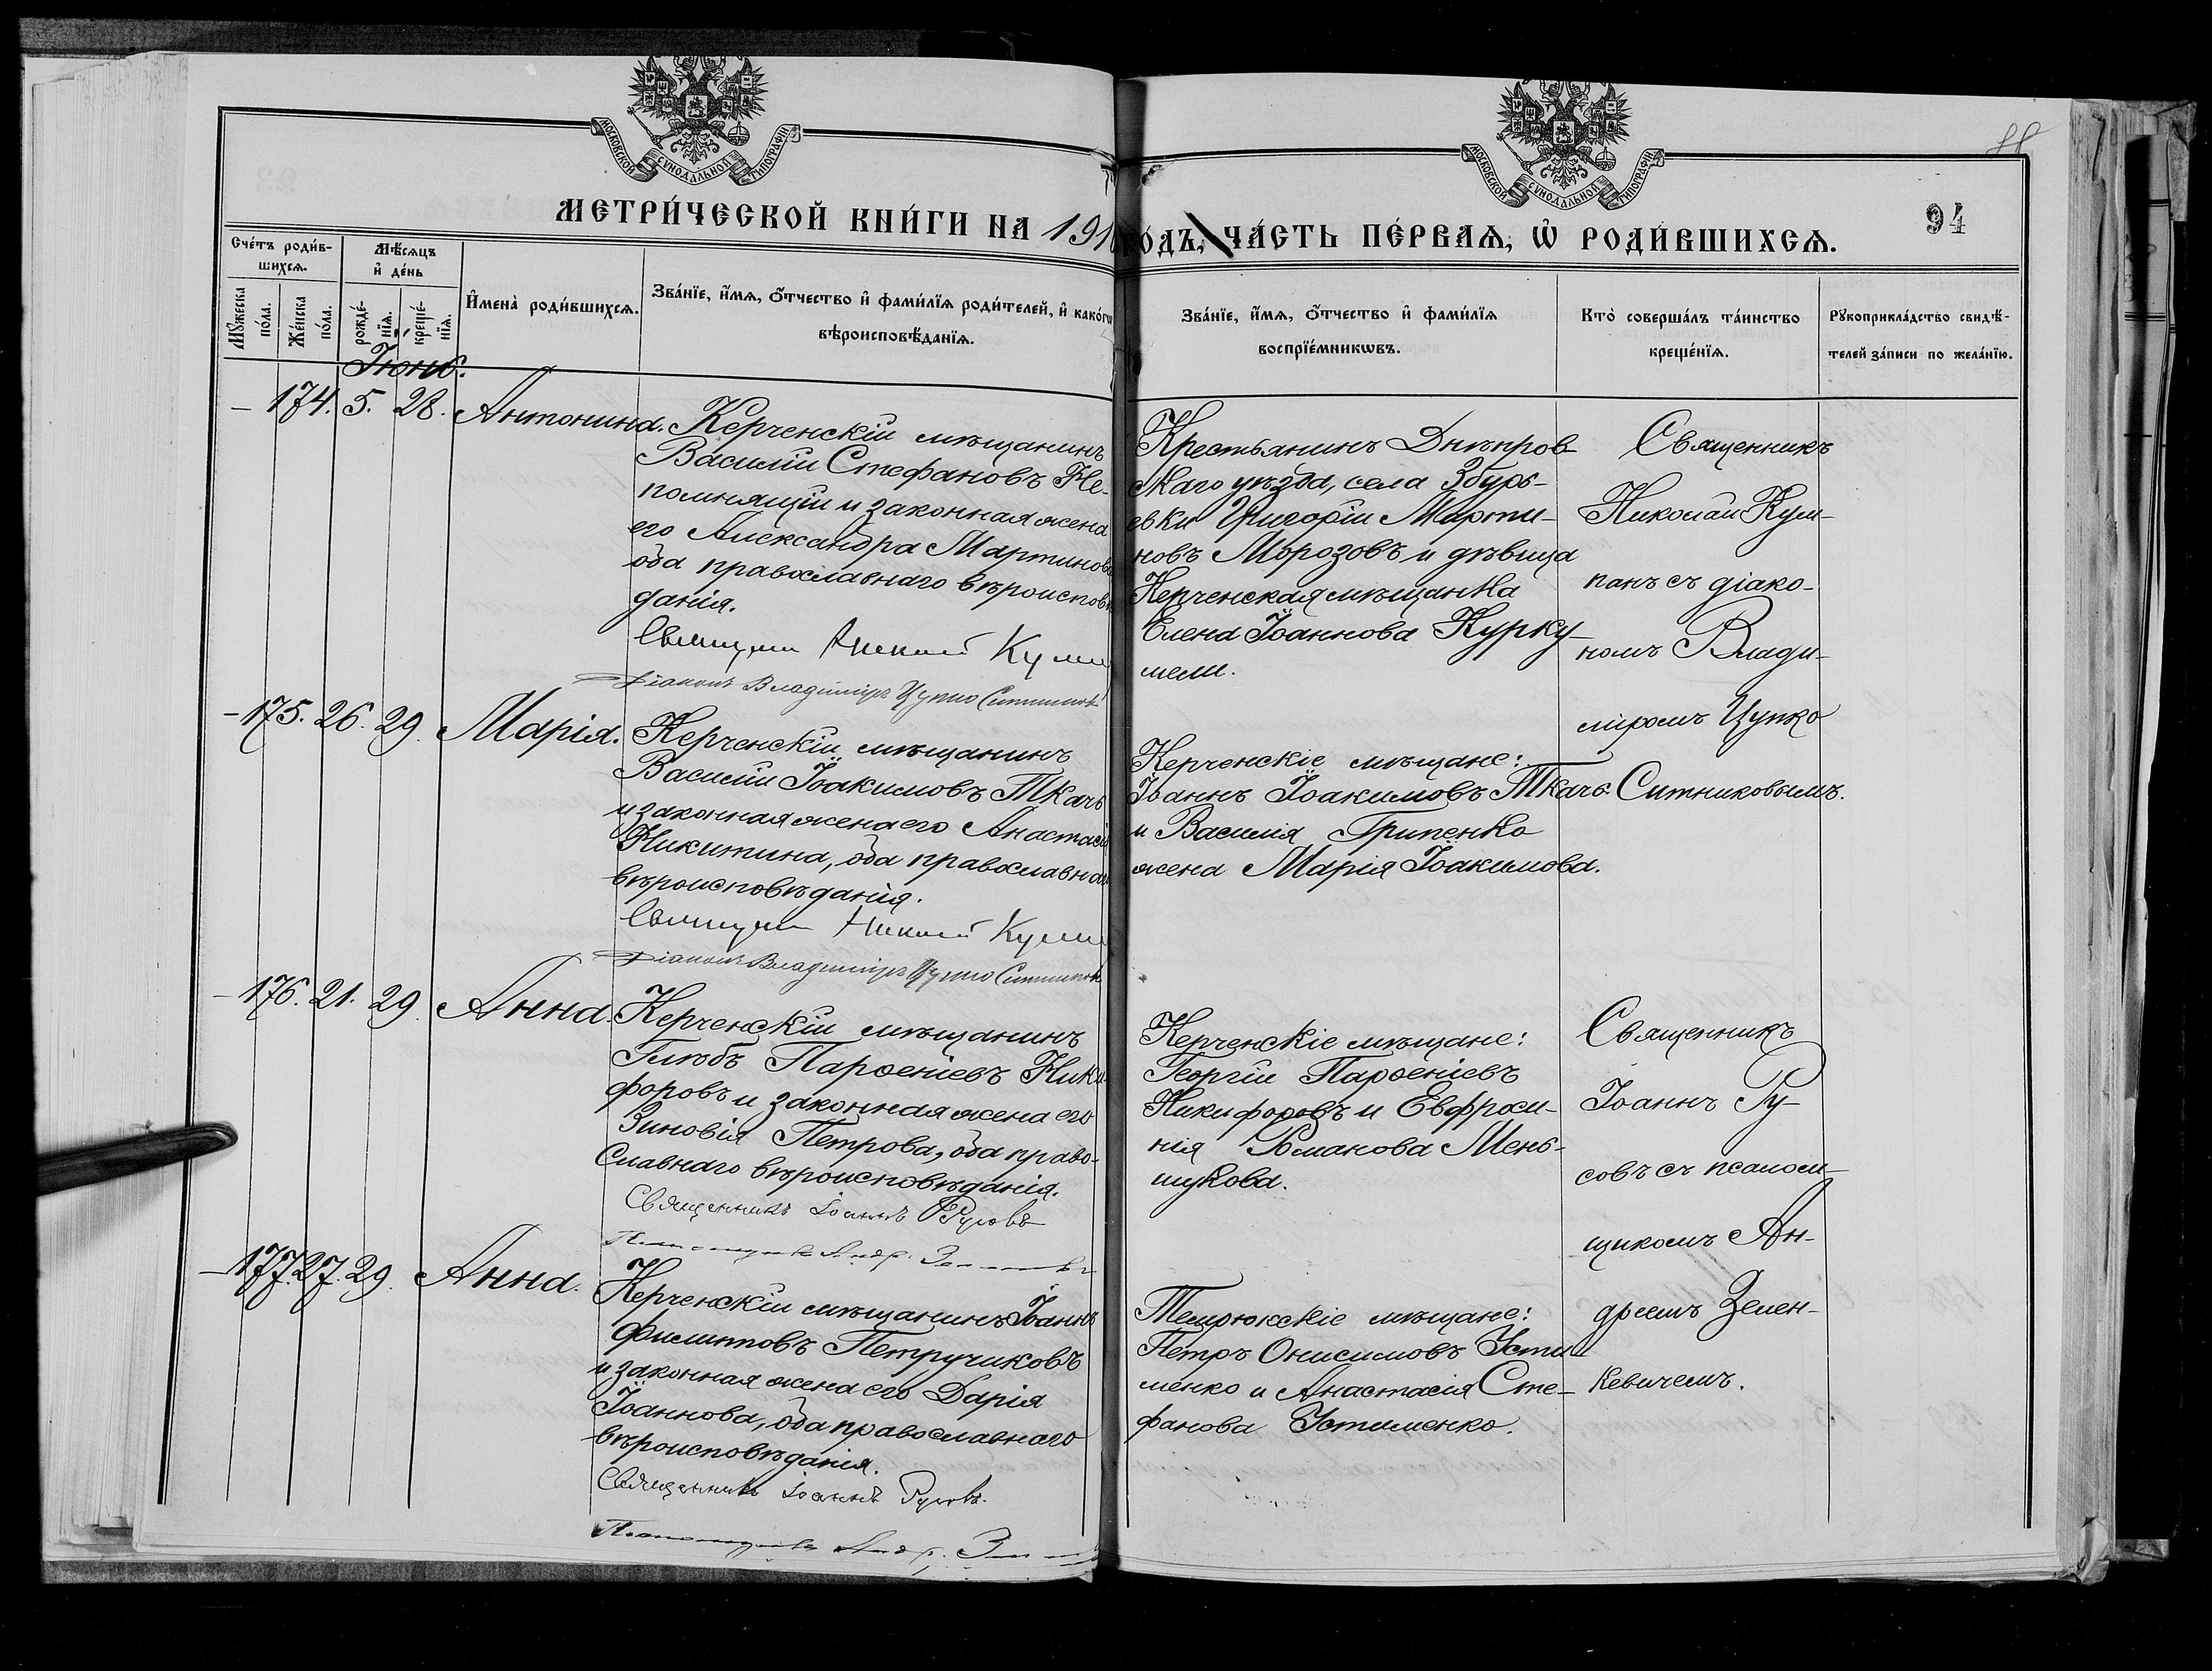 МОСКОВСКОЙ СУНОДАЛЬНОЙ ТИПОГРАФІИ
МОСКОВСКОЙ СУНОДАЛЬНОЙ ТИПОГРАФІИ
88
94
МЕТРИ́ЧЕСКОЙ КНИ́ГИ НА 191 ГО́ДЪ, ЧА́СТЬ ПЕ́РВАѦ, Ѡ҆ РОДИ́ВШИХСѦ.
Сче́тъ роди́в-
шихсѧ.
Мѣ́сѧцъ
и҆ де́нь
Мꙋжеска
по́ла.
Же́нска
по́ла.
рожде́-
нїѧ.
креще́-
нїѧ.
И҆мена̀ роди́вшихсѧ.
Зва́нїе, и҆́мѧ, ѻ҆́тчество и҆ фами́лїѧ роди́телей, и҆ како́гѡ
вѣроисповѣ́данїѧ.
Зва́нїе, и҆́мѧ, ѻ҆́тчество и҆ фами́лїѧ
воспрїе́мникѡвъ.
Кто̀ соверша́лъ та́инство
креще́нїѧ.
Рꙋкоприкла́дство свидѣ́-
телей за́писи по жела́нїю.
Іюнь.
– 174. 5. 28. Антонина.
Керченскій мѣщанинъ
Василій Стефановъ Не-
помнящій и законная жена
его Александра Мартинова
оба православнаго вѣроисповѣ
данія.
Священникъ Николай Кули
Діаконъ Владиміръ Цупко Ситников
Крестьянинъ Днѣпров-
скаго уѣзда, села Збурь-
евки Григорій Марти-
новъ Морозовъ и дѣвица
Керченская мѣщанка
Елена Іоаннова Курку-
мели.
Священникъ
Николай Кули-
панъ съ діако-
номъ Влади-
міромъ Цупко
Ситниковымъ.
– 175. 26. 29. Марія.
Керченскій мѣщанинъ
Василій Іоакимовъ Ткачъ
и законная жена его Анастасія
Никитина, оба православнаго
вѣроисповѣданія.
Священникъ Николай Кули
Діаконъ Владиміръ Цупко Ситников
Керченскіе мѣщане:
Іоаннъ Іоакимовъ Ткачъ
и Василія Грипенко
жена Марія Іоакимова.
– 176. 21. 29. Анна.
Керченскій мѣщанинъ
Глѣбъ Парѳеніевъ Ники-
форовъ и законная жена его
Зиновія Петрова, оба право-
славнаго вѣроисповѣданія.
Священникъ Іоаннъ Русовъ
Псаломщикъ Андр.
Керченскіе мѣщане:
Георгій Парѳеніевъ
Никифоровъ и Евфроси-
нія Романова Мень-
шукова.
Священникъ
Іоаннъ Ру-
совъ съ псалом-
щикомъ Ан-
дреемъ Зелен-
кевичемъ.
– 177. 27. 29. Анна.
Керченскій мѣщанинъ Іоаннъ
Филипповъ Петручиковъ
и законная жена его Дарія
Іоаннова, оба православнаго
вѣроисповѣданія.
Священникъ Іоаннъ Русовъ.
Псаломщикъ Андр.
Темрюкскіе мѣщане:
Петръ Онисимовъ Усти-
менко и Анастасія Сте-
фанова Устименко.